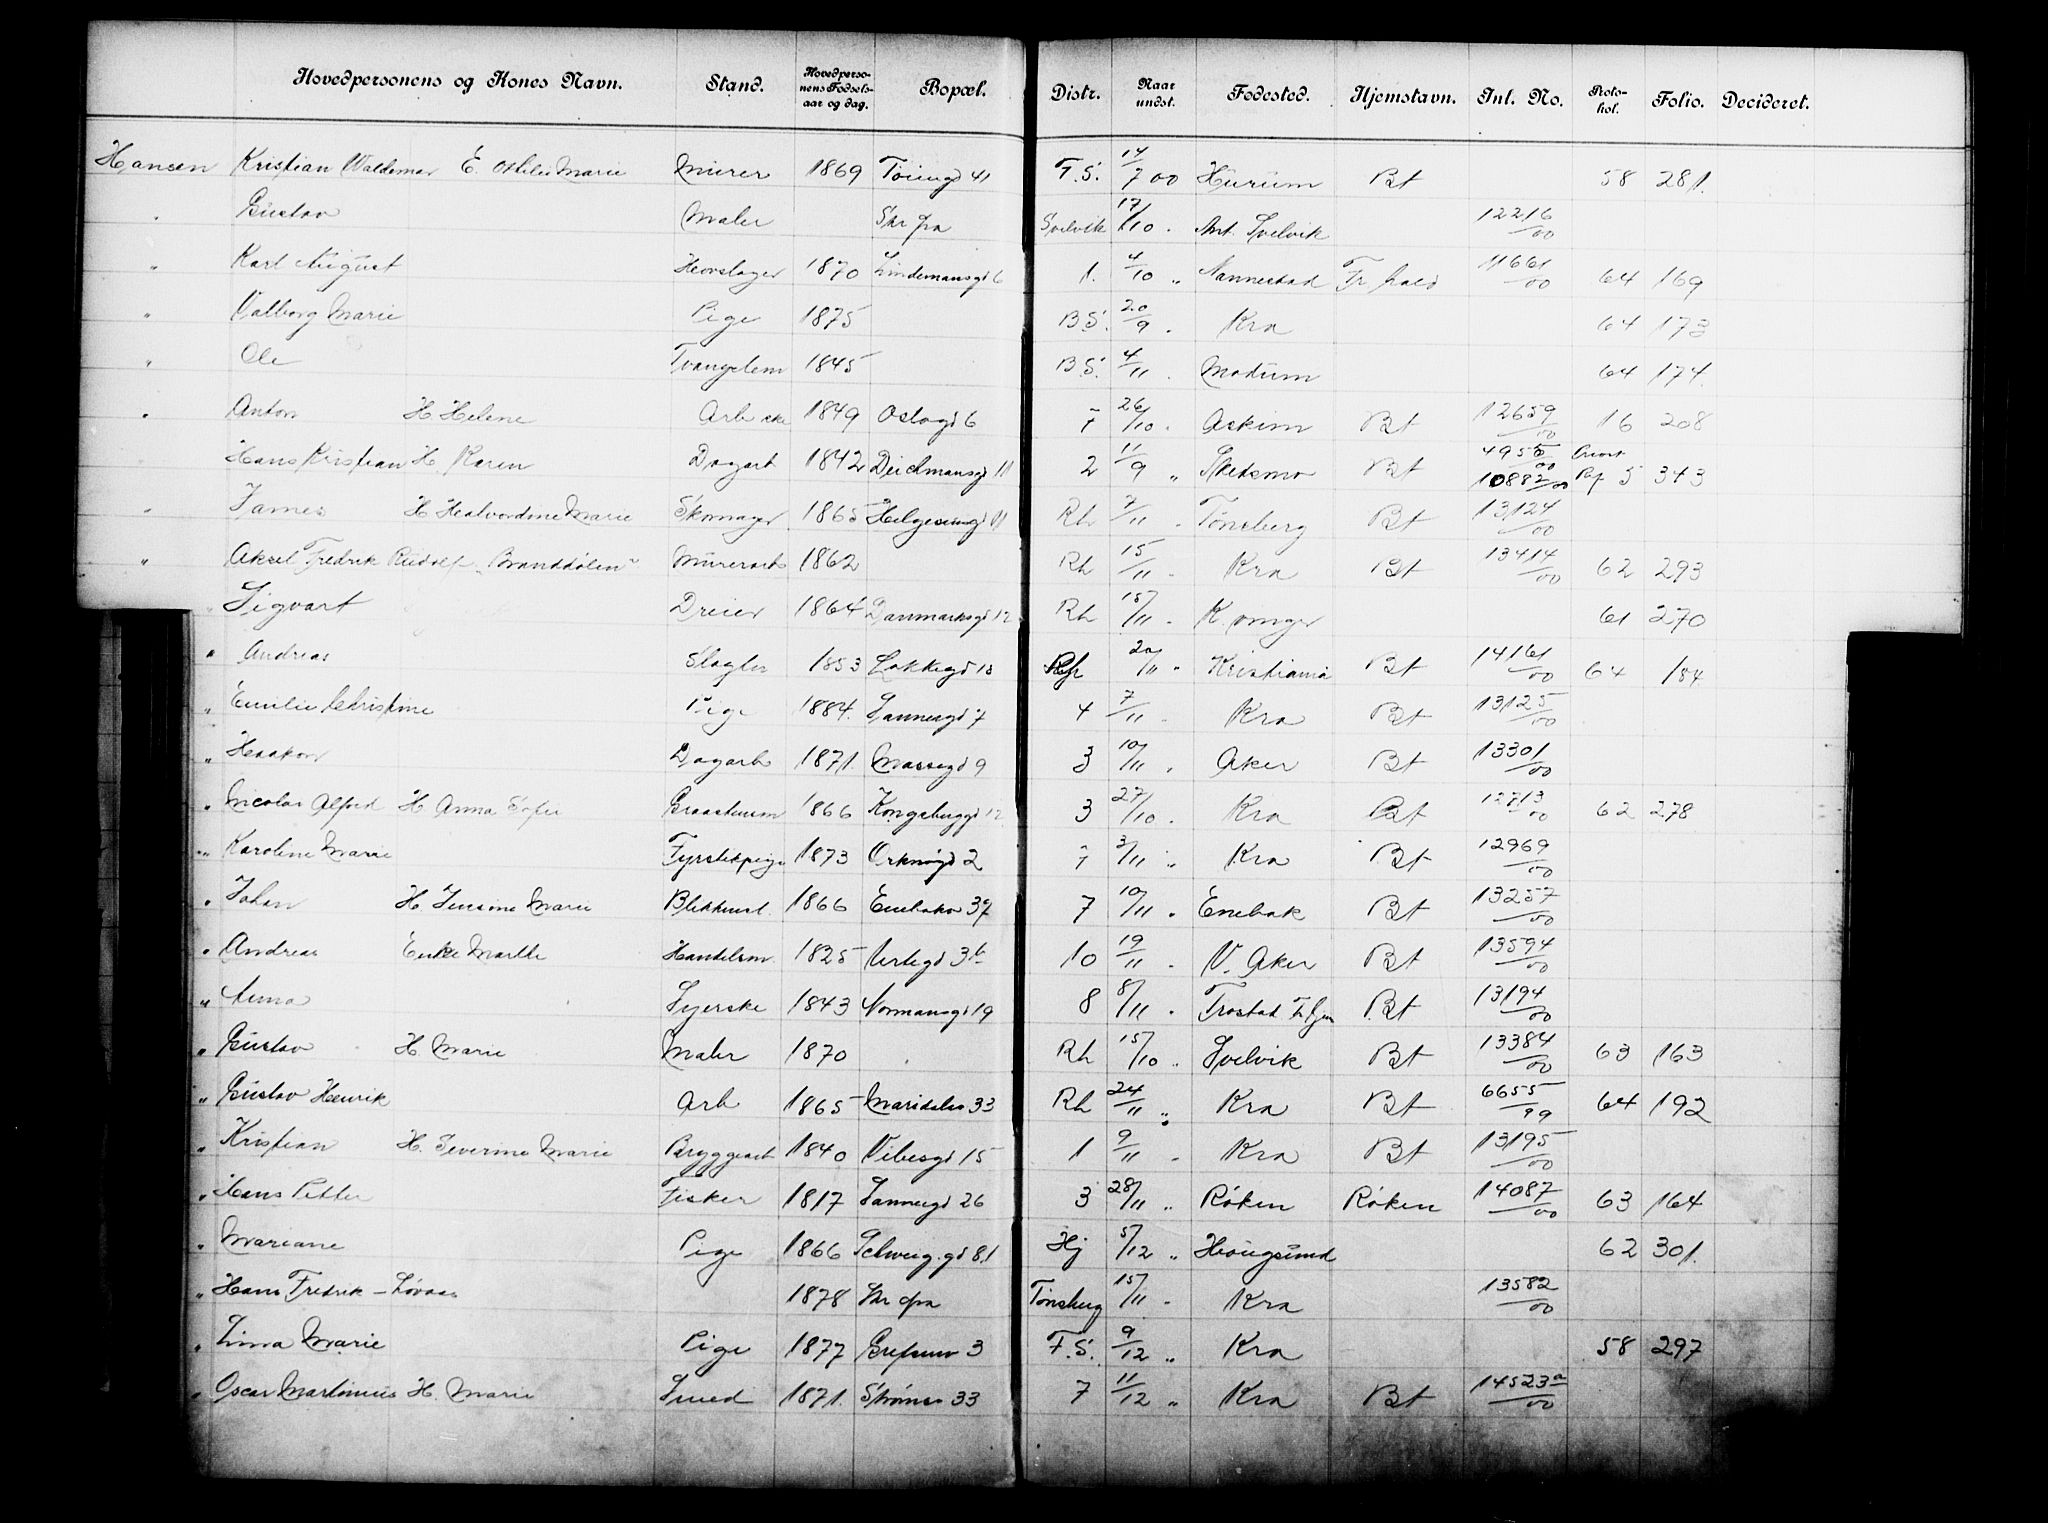 Hovedpersonens og Kones Navn. Stand. Hovedpersonens Fødselsaar og dag. Bopæl. Distr. Naar undst. Fødested. Hjemstavn. Inl. No. Protokol. Folio. Decideret.
Hansen Kristian Waldemar E. Otilie Marie Murer 1869 Tøiengd 41 F.S. 14/7 00 Hurum Bt 58 281.
" Gustav Maler Skr fra Svelvik 17/10 " Svelvik 12216/00
" Karl August Hovslager 1870 Lindemansgd 6 1. 4/10 " Nannestad Fr hald 11661/00 64 169
" Valborg Marie Pige 1875 B.S. 20/9 " Kra 64 173
" Ole Tvangslem 1845 B.S. 4/11 " Modum 64 174.
" Anton H Helene Arb 1849 Oslogd 6 7 26/10 " Askim Bt 12659/00 16 208
" Hans Kristian H Karen Dagarb 1842 Deichmansgd 11 2 11/9 " Skedsmo Bt 4955/00 10882/00 5 343
" James H Halvordine Marie Skomager 1865 Helgesensgd 11 Rh 7/11 " Tønsberg Bt 13124/00
" Aksel Fredrik Rudolf "Branddølen" Murerarb 1862 Rh 15/11 " Kra Bt 13414/00 62 293
" Sigvart Dreier 1864 Danmarksgd 12 Rh 15/11 " K. vinger 61 270
" Andreas Slagter 1853 Løkkegd 13 20/11 " Kristiania Bt 14161/00 64 184
" Emilie Christine Pige 1884. Sannergd 7 4 7/11 " Kra Bt 13125/00
" Haakon Dagarb 1871. Mossegd 9 3 10/11 " Aker Bt 13301/00
" Nicolai Alfred H Anna Sofie 1866 Kongsberggd 12 3 27/10 " Kra Bt 12713/00 62 278
" Karoline Marie Fyrstikpige 1873 Orknøgd 2 7 3/11 " Kra Bt 12969/00
" Johan H. Jensine Marie Blikkensl. 1866 Enebakv 37 7 10/11 " Enebak Bt 13257/00
" Andreas Enke Marthe Handelsm. 1825 Vertegd 3b 10 19/11 " V. Aker Bt 13594/00
" Anna Syerske 1843 Normansgd 19 8 8/11 " Trøstad Bt 13194/00
" Gustav H. Marie Maler 1870 Rh 15/10 " Svelvik Bt 13384/00 63 163
" Gustav Henrik Arb 1865 Maridalsv 33 Rh 24/11 " Kra Bt 6655/99 64 192
" Kristian H. Severine Marie Bryggearb 1840 Vibesgd 15 1 9/11 " Kra Bt 13195/00
" Hans Petter Fisker 1817 Sannergd 26 3 28/11 " Røken Røken 14087/00 63 164
" Mariane Pige 1866 Schweig.gd 81 Hj 5/12 " Haugsund 62 301.
" Hans Fredrik - Løvaas 1878 Skr fra Tønsberg 15/11 " Kra 13582/00
" Linna Marie Pige 1877 Grefsenv 3 F.S. 9/12 " Kra 58 297
" Oscar Martinius H. Marie Smed 1871. Strømsv 33 7 11/12 " Kra Bt 14523a/00